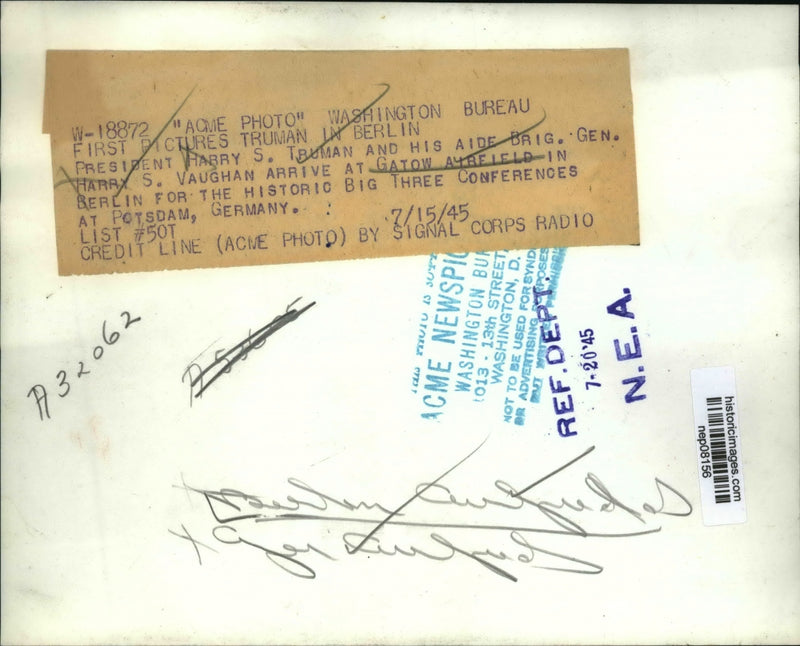 W-18872 "ACME PHOTO" WASHINGTON BUREAU
FIRST PICTURES TRUMAN IN BERLIN
PRESIDENT HARRY S. TRUMAN AND HIS AIDE BRIG. GEN.
HARRY S. VAUGHAN ARRIVE AT GATOW AIRFIELD IN
BERLIN FOR THE HISTORIC BIG THREE CONFERENCES
AT POTSDAM, GERMANY.
LIST #50T 7/15/45
CREDIT LINE (ACME PHOTO) BY SIGNAL CORPS RADIO
ACME NEWSPIC
WASHINGTON BU
1013 - 13th STREET
WASHINGTON, D.
NOT TO BE USED FOR SYND
OR ADVERTISING POSES
REF. DEPT.
7-20'45
N.E.A.
A32062
historicimages.com
nep08156